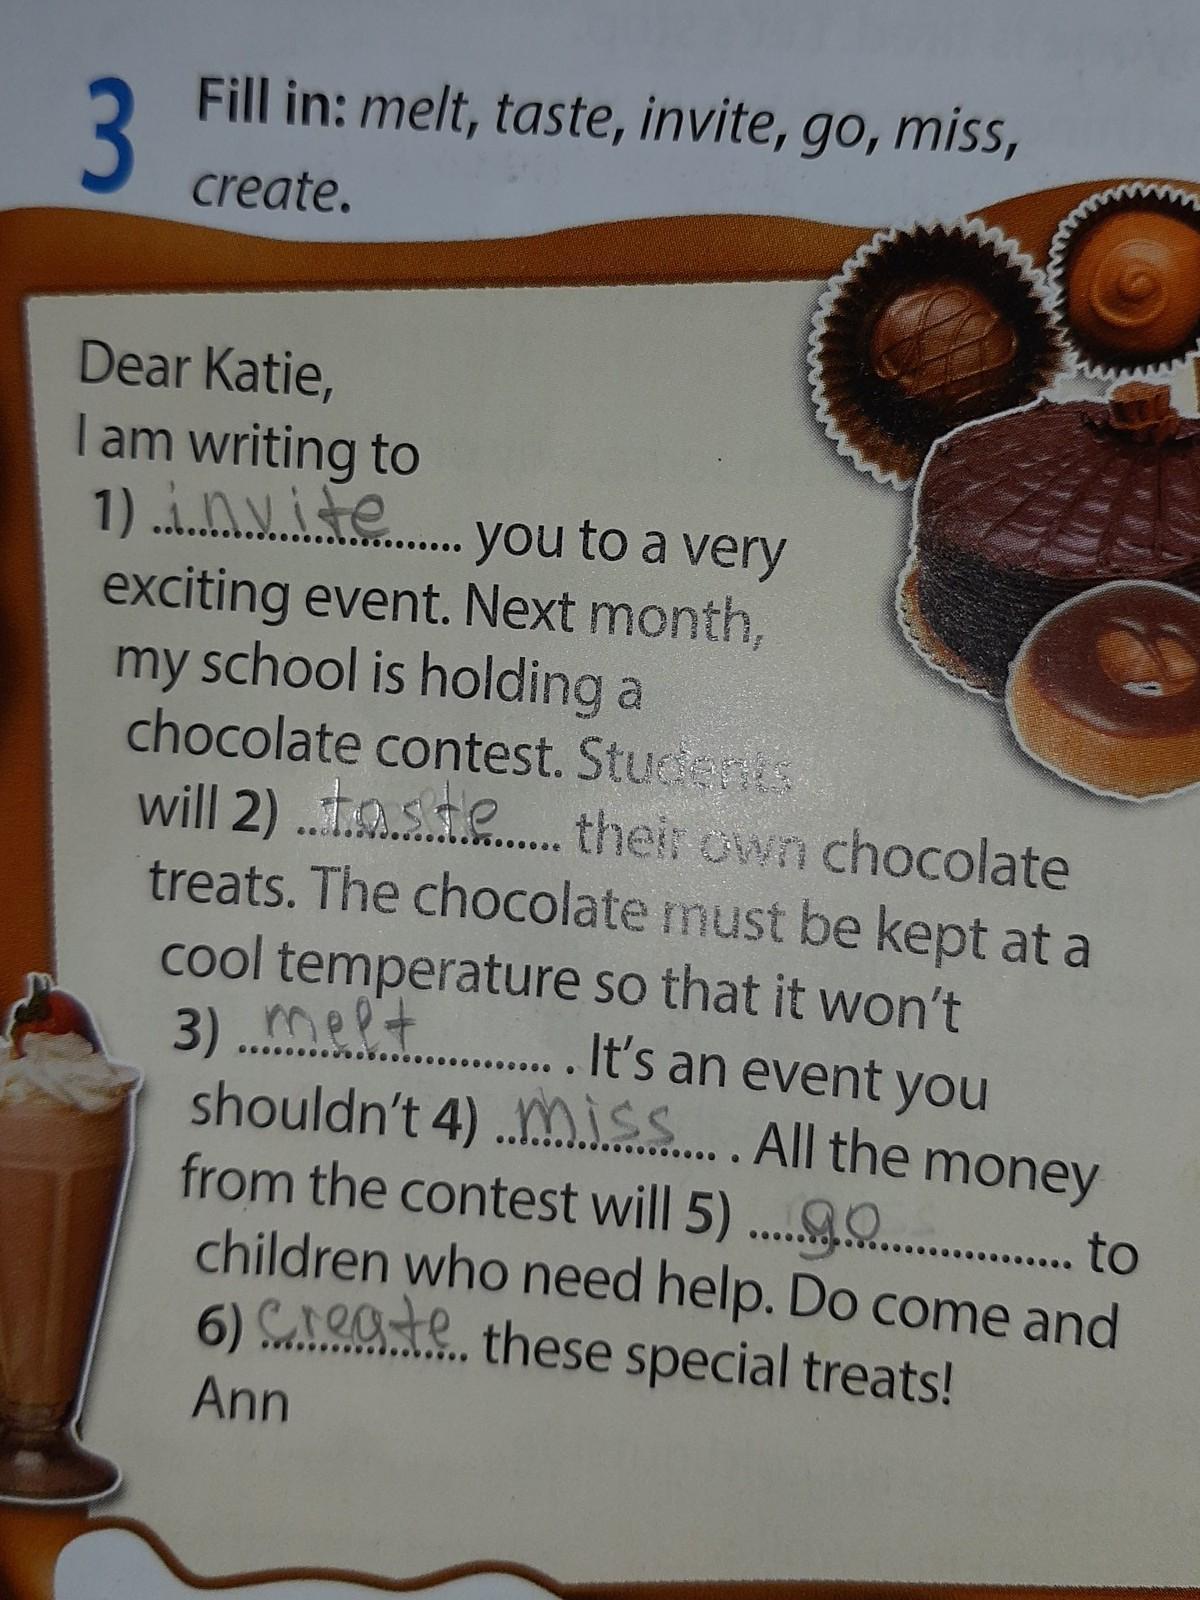 3 Fill in: melt, taste, invite, go, miss,
create.
Dear Katie,
I am writing to
1) invite you to a very
exciting event. Next month,
my school is holding a
chocolate contest. Students
will 2) taste their own chocolate
treats. The chocolate must be kept at a
cool temperature so that it won't
3) melt . It's an event you
shouldn't 4) miss . All the money
from the contest will 5) go to
children who need help. Do come and
6) create these special treats!
Ann